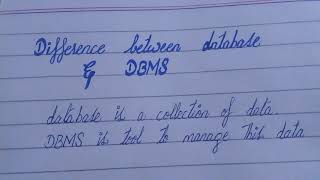 Difference between database
& DBMS
database is a collection of data.
DBMS is tool to manage this data